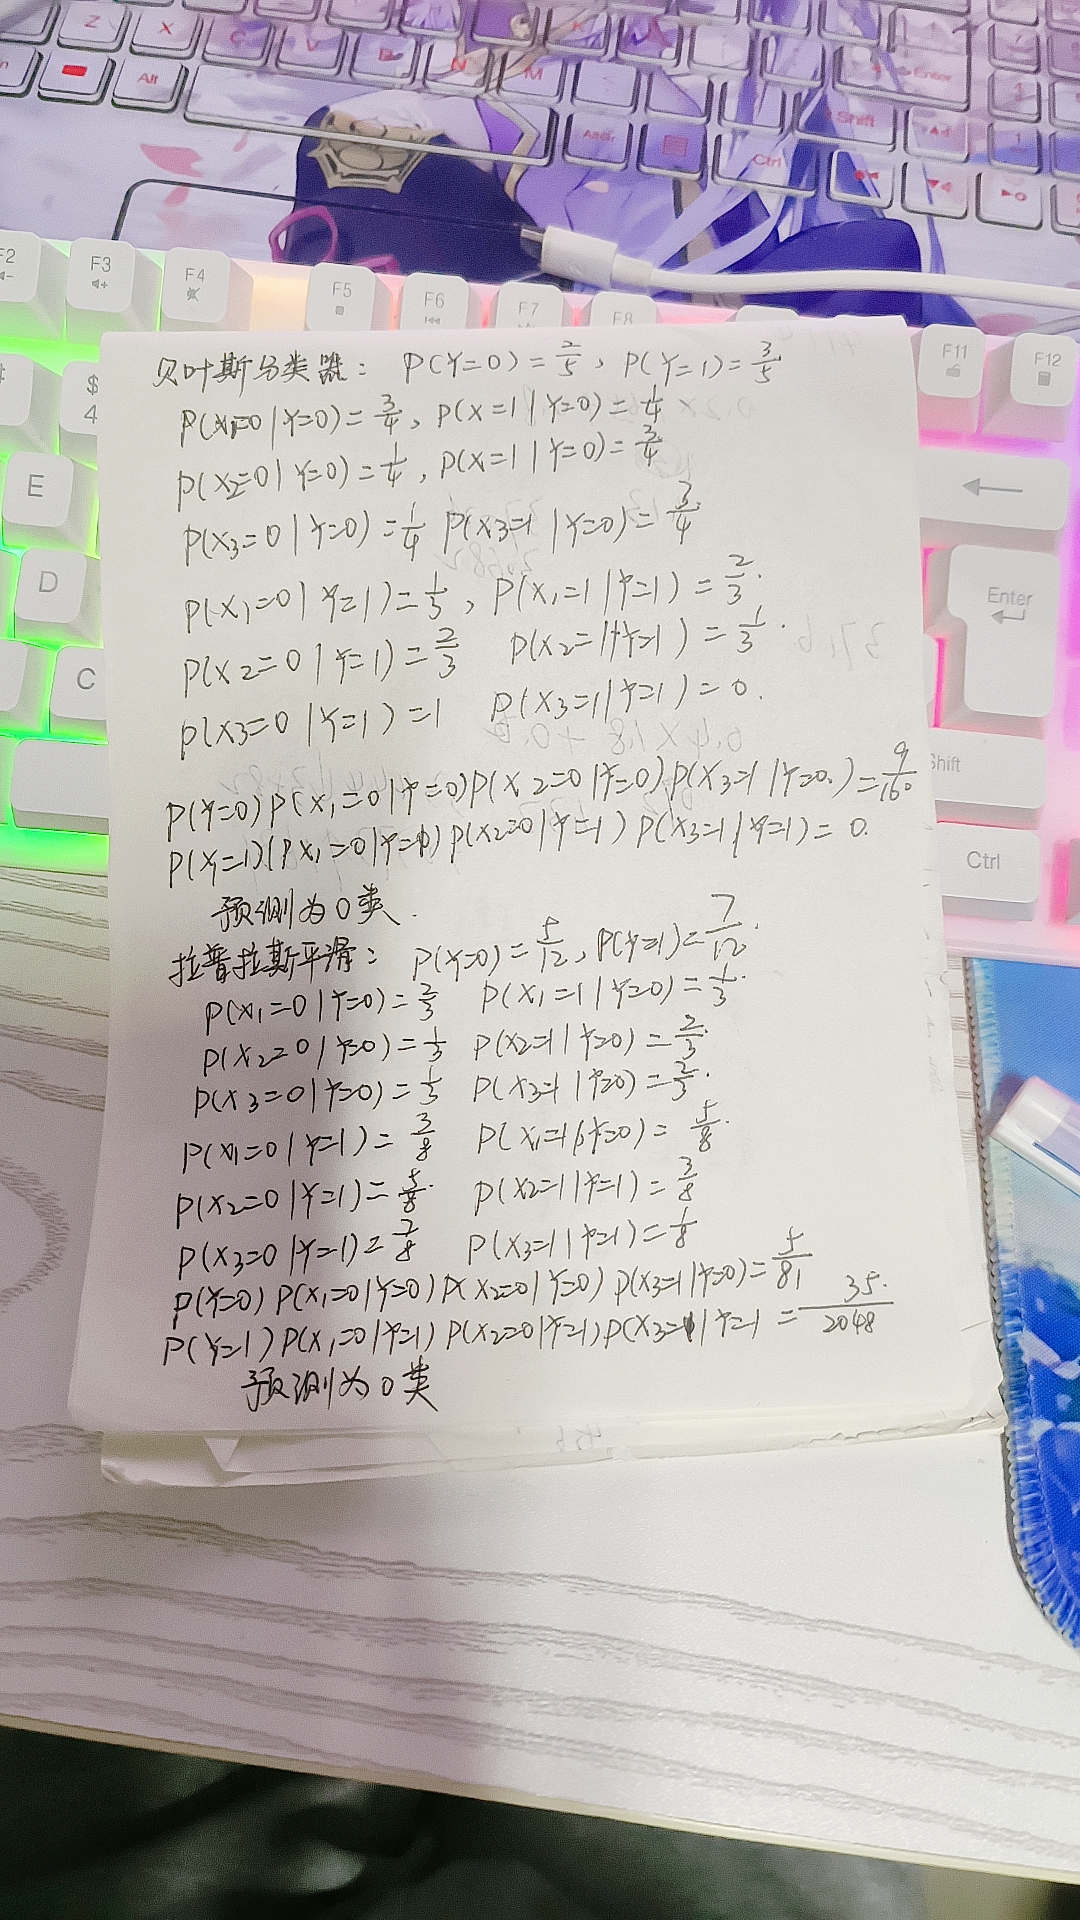 Z X C V B N M
Alt Enter
Shift
Ctrl
F2 F3 F4 F5 F6 F7 F8 F11 F12
$
4
E
D
Enter
C
Shift
Ctrl
贝叶斯分类器: P(Y=0)=2/5, P(Y=1)=3/5
P(X1=0|Y=0)=3/4, P(X=1|Y=0)=1/4
P(X2=0|Y=0)=1/4, P(X=1|Y=0)=3/4
P(X3=0|Y=0)=1/4 P(X3=1|Y=0)=3/4
P(X1=0|Y=1)=1/3, P(X1=1|Y=1)=2/3.
P(X2=0|Y=1)=2/3 P(X2=1|Y=1)=1/3.
P(X3=0|Y=1)=1 P(X3=1|Y=1)=0.
P(Y=0)P(X1=0|Y=0)P(X2=0|Y=0)P(X3=1|Y=0.)=9/160
P(Y=1)(PX1=0|Y=1)P(X2=0|Y=1)P(X3=1|Y=1)=0.
预测为0类.
拉普拉斯平滑: P(Y=0)=5/12, P(Y=1)=7/12.
P(X1=0|Y=0)=2/3 P(X1=1|Y=0)=1/3.
P(X2=0|Y=0)=1/3 P(X2=1|Y=0)=2/3.
P(X3=0|Y=0)=1/3 P(X3=1|Y=0)=2/3.
P(X1=0|Y=1)=3/8 P(X1=1|Y=0)=5/8.
P(X2=0|Y=1)=5/8. P(X2=1|Y=1)=3/8
P(X3=0|Y=1)=7/8 P(X3=1|Y=1)=1/8
P(Y=0)P(X1=0|Y=0)P(X2=0|Y=0)P(X3=1|Y=0)=5/81
P(Y=1)P(X1=0|Y=1)P(X2=0|Y=1)P(X3=1|Y=1=35./2048
预测为0类